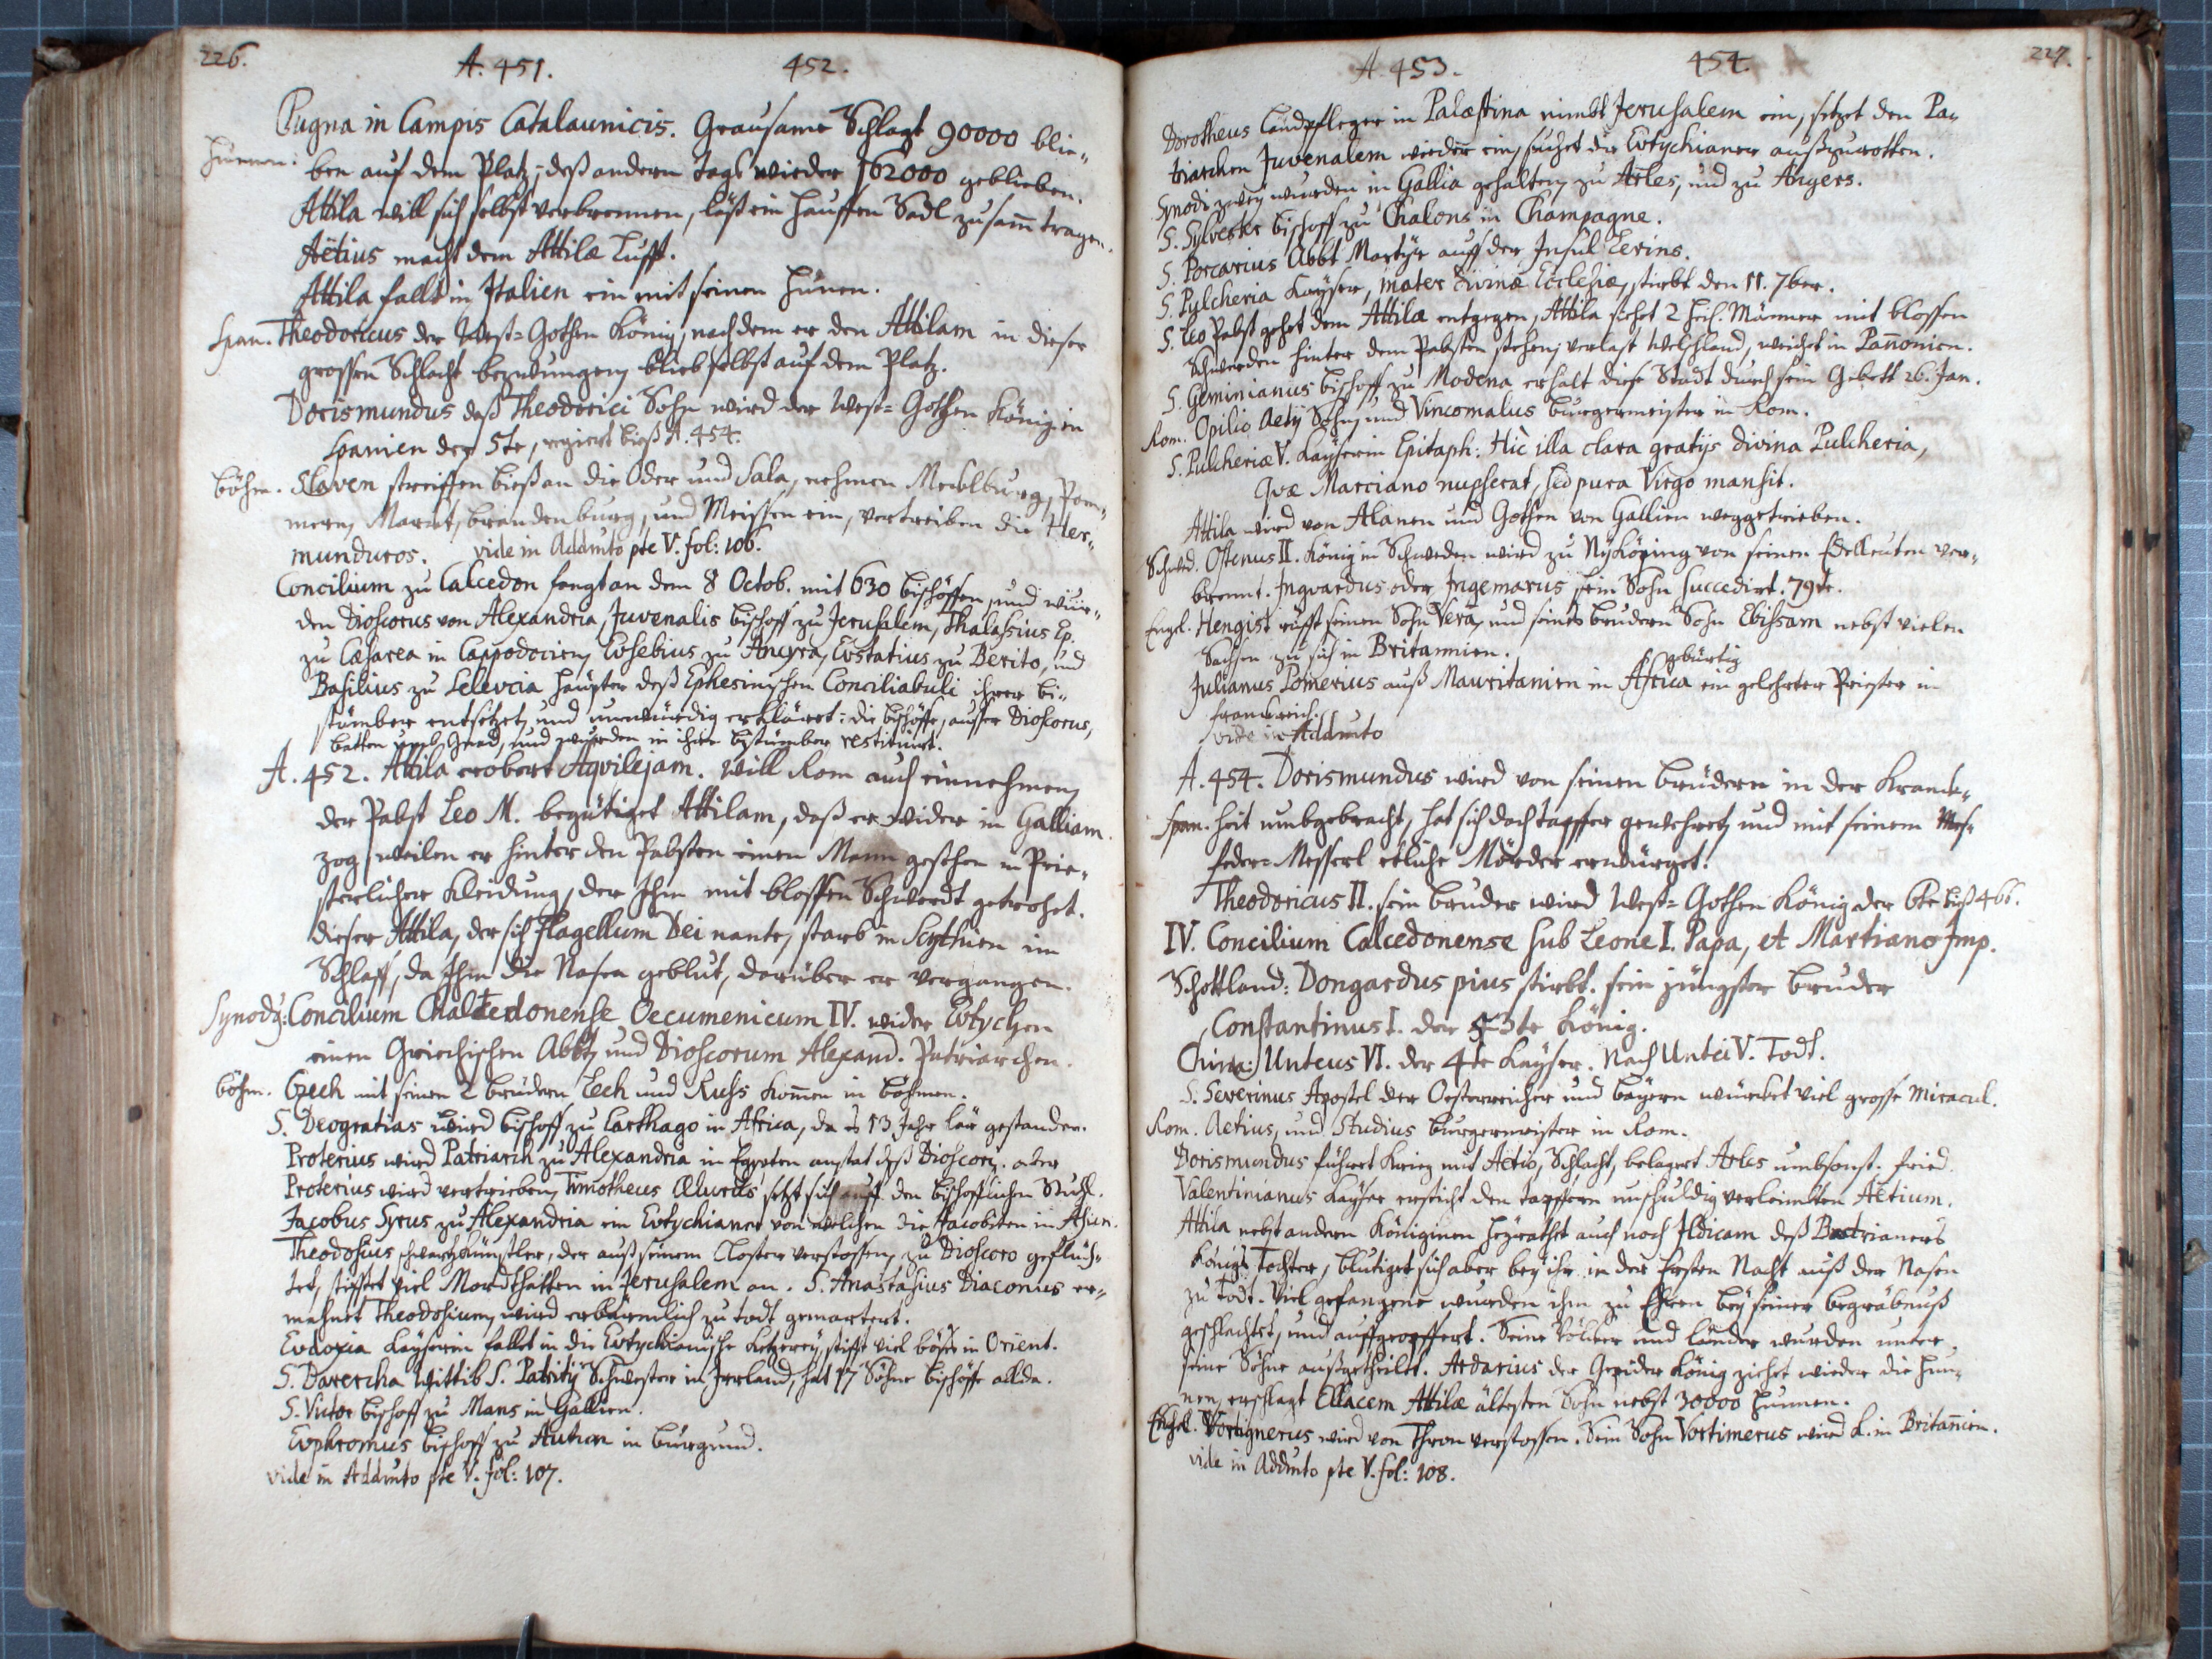 226.
A. 451. 452.
Pugna in Campis Catalaunicis. Grausame Schlagt 90000 blie-
Hunnen. ben auf dem Platz, deß andern tags wieder 162000 geblieben.
Attila will sich selbst verbrennen, läst ein hauffen Sädl zusam̄ tragen.
Aëtius macht dem Attilæ Lufft.
Attila fallt in Italien ein mit seinen Hunen.
Span. Theodoricus der West=Gothen König, nach dem er den Attilam in dieser
grossen Schlacht bezwungen, blieb selbst auf dem Platz.
Dorismundus deß Theodorici Sohn wird der West=Gothen König in
Spanien der 5te, regiert bieß A. 454.
Böhm. Slaven streiffen bieß an die Oder und Sala, nehmen Mecklburg, Pom-
mern, Marck, Brandenburg, und Meissen ein, vertreiben die Her-
munduros. vide in Addmto pte V. fol: 106.
Concilium zu Calcedon fangt an dem 8 Octob. mit 630 bischöffen, und wur-
den Dioscorus von Alexandria, Juvenalis bischoff zu Jerusalem, Thalassius Ep.
zu Cæsarea in Cappodocien, Eusebius zu Ancyra, Eustatius zu Berito, und
Basilius zu Seleucia häupter deß Ephesinischen Conciliabuli ihrer bi-
stümber entsetzet, und unwürdig erkläret: die bischöffe, ausser Dioscorus,
batten umb Gnad, und wurden in ihre bistümber restituirt.
A. 452. Attila erobert Aqvilejam. Will Rom auch einnehmen,
der Pabst Leo M. begütiget Attilam, daß er wider in Galliam
zog, weilen er hinter den Pabsten einen Mann gesehen in Prie-
sterlicher Kleidung, der Ihm mit blossen Schwerdt getrohet.
dieser Attila, der sich flagellum Dei nante, starb in Scythien im
Schlaff, da Ihm die Nasen geblut, darüber er vergangen.
Synodg: Concilium Chalcedonense Oecumenicum IV. wider Eutychen
einen Griechischen Abbt, und Dioscorum Alexand. Patriarchen.
Böhm. Czech mit seinen 2 brüdern Lech und Russ kom̄en in Böhmen.
S. Deogratias wird bischoff zu Carthago in Africa, da es 13 Jahr lär gestanden.
Proterius wird Patriarch zu Alexandria in Egypten anstat deß Dioscori. oder
Proterius wird vertrieben, Timotheus Ælurus setzt sich auff den bischofflichen Stuhl.
Jacobus Syrus zu Alexandria ein Eutychianer von welchen die Jacobiten in Asien.
Theodosius schwartzkünstler, der auß seinem Closter verstossen, zu Dioscoro geflüch-
tet, stifftet viel Mordthatten in Jerusalem an. S. Anastasius Diaconus er-
mahnet Theodosium, wird erbärmlich zu todt gemartert.
Eudoxia Kayserin fallet in die Eutychianische Ketzerey, stifft viel böses in Orient.
S. Darercha Wittib S. Patritij Schwester in Irrland, hat 17 Söhne bischöffe allda.
S. Victor bischoff zu Mans in Gallien.
Euphromius bischoff zu Autun in Burgund.
vide in Addmto pte V. fol: 107.
A. 453. 454. 227.
Dorotheus Landpfleger in Palæstina nimbt Jerusalem ein, setzet den Pa-
triarchen Juvenalem wieder ein, suchet die Eutychianer außzurotten.
Synodi zwey wurden in Gallia gehalten, zu Arles, und zu Angers.
S. Sylvester bischoff zu Chalons in Champagne.
S. Porcarius Abbt Martyr auff der Insul Lerins.
S. Pulcheria Kayser, mater divinæ Ecclesiæ, stirbt den 11. 7ber.
S. Leo Pabst gehet dem Attilæ entgegen, Attila siehet 2 heil. Männer mit blossen
Schwerden hinter dem Pabsten stehen, verlast Welschland, weichet in Pan̄onien.
S. Geminianus bischoff zu Modena erhalt diese Stadt durch sein Gebett 26. Jan.
Rom. Opilio Aetij Sohn, und Vincomalus Burgermeister in Rom.
S. Pulcheriæ V. Kayserin Epitaph: Hic illa clara gratijs divina Pulcheria,
Qvæ Marciano nupserat, sed pura Virgo mansit.
Attila wird von Alanen und Gothen von Gallien weggetrieben.
Schwed. Ostenus II. König in Schweden wird zu Nyköping von seinen Edelleuten ver-
brennt. Ingvardus oder Ingemarus sein Sohn succedirt. 79te.
Engl. Hengist rufft seinen Sohn Vera, und seines brudern Sohn Ebissam nebst vielen
Sachsen zu sich in Britannien.
gebürtig
Julianus Pomerius auß Mauritanien in Africa ein gelehrter Priester in
Franckreich.
vide in Addmto
A. 454. Dorismundus wird von seinen brüdern in der Kranck-
Span. heit umbgebracht, hat sich doch tapffer gewehret, und mit seinem Mes-
feder=Messerl etliche Mörder erwürget.
Theodoricus II. sein bruder wird West=Gothen König der 6te bieß 466.
IV. Concilium Calcedonense sub Leone I. Papa, et Martiano Imp.
Schottland: Dongardus pius stirbt. sein jüngster bruder
Constantinus I. der 43te König.
China: Unteus VI. der 4te Kayser. Nach Untei V. Todt.
S. Severinus Apostel der Oesterreicher und Bayern würcket viel grosse Miracul.
Rom. Aetius, und Studius Burgermeister in Rom.
Dorismundus führet Krieg mit Aetio, Schlacht, belagert Arles umbsonst. fried.
Valentinianus Kayser ersticht den tapffern unschuldig verleimbten Aëtium.
Attila nebst andern Königinen heyrathet auch noch Ildicam deß Bactrianers
Königs Tochter, blutiget sich aber bey ihr in der Ersten Nacht auß der Nasen
zu todt. Viel gefangene wurden ihm zu Ehren bey seiner begräbnuß
geschlachtet, und auffgeopffert. Seine Völcker und Länder wurden unter
seine Söhne außgetheilet. Ardarius der Gepider König ziehet wieder die Hun-
nen, erschlagt Ellacem Attilæ ältesten Sohn nebst 30000 Hunnen.
Engl. Vortignerus wird von Thron verstossen. Sein Sohn Vortimerus wird K. in Britan̄ien.
vide in Addmto pte V. fol: 108.